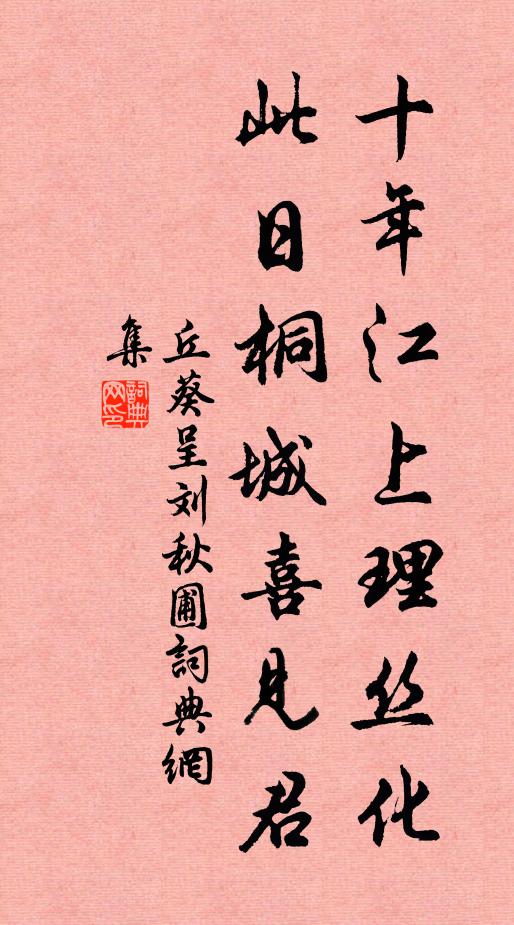 十年江上理丝化
此日桐城喜见君
丘葵呈刘秋圃詞典網
集
詞典网印